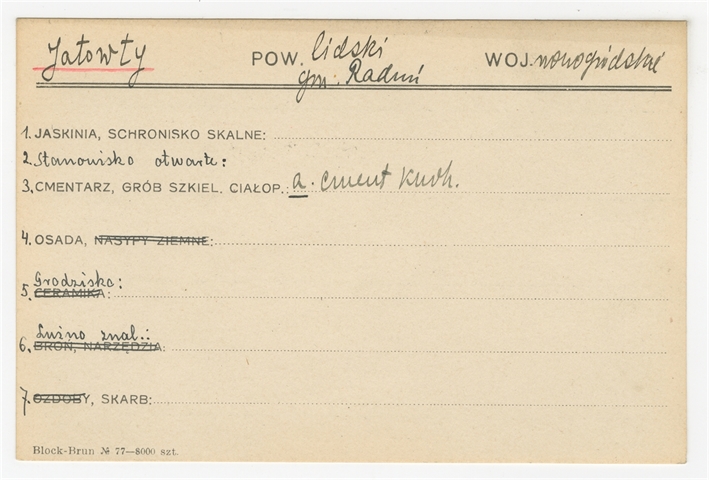 Jatowty POW. lidski WOJ. nowogródzkie
gm. Raduń
1. JASKINIA, SCHRONISKO SKALNE:
2. Stanowisko otwarte:
3. CMENTARZ, GRÓB SZKIEL. CIAŁOP.: a. cment kurh.
4. OSADA, NASYPY ZIEMNE:
Grodzisko:
5. CERAMIKA:
Luźno znal.:
6. BROŃ, NARZĘDZIA:
7. OZDOBY, SKARB:
Block-Brun № 77—8000 szt.